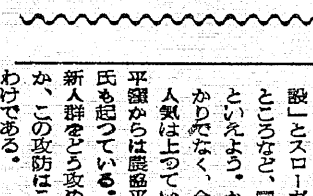 設」とスローガ
ところなど、
といえよう。か
かりでなく、今
人気は上つてい
平窪からは農協平
氏も起つている。
新人群をどう攻め
か、この攻防は
わけである。